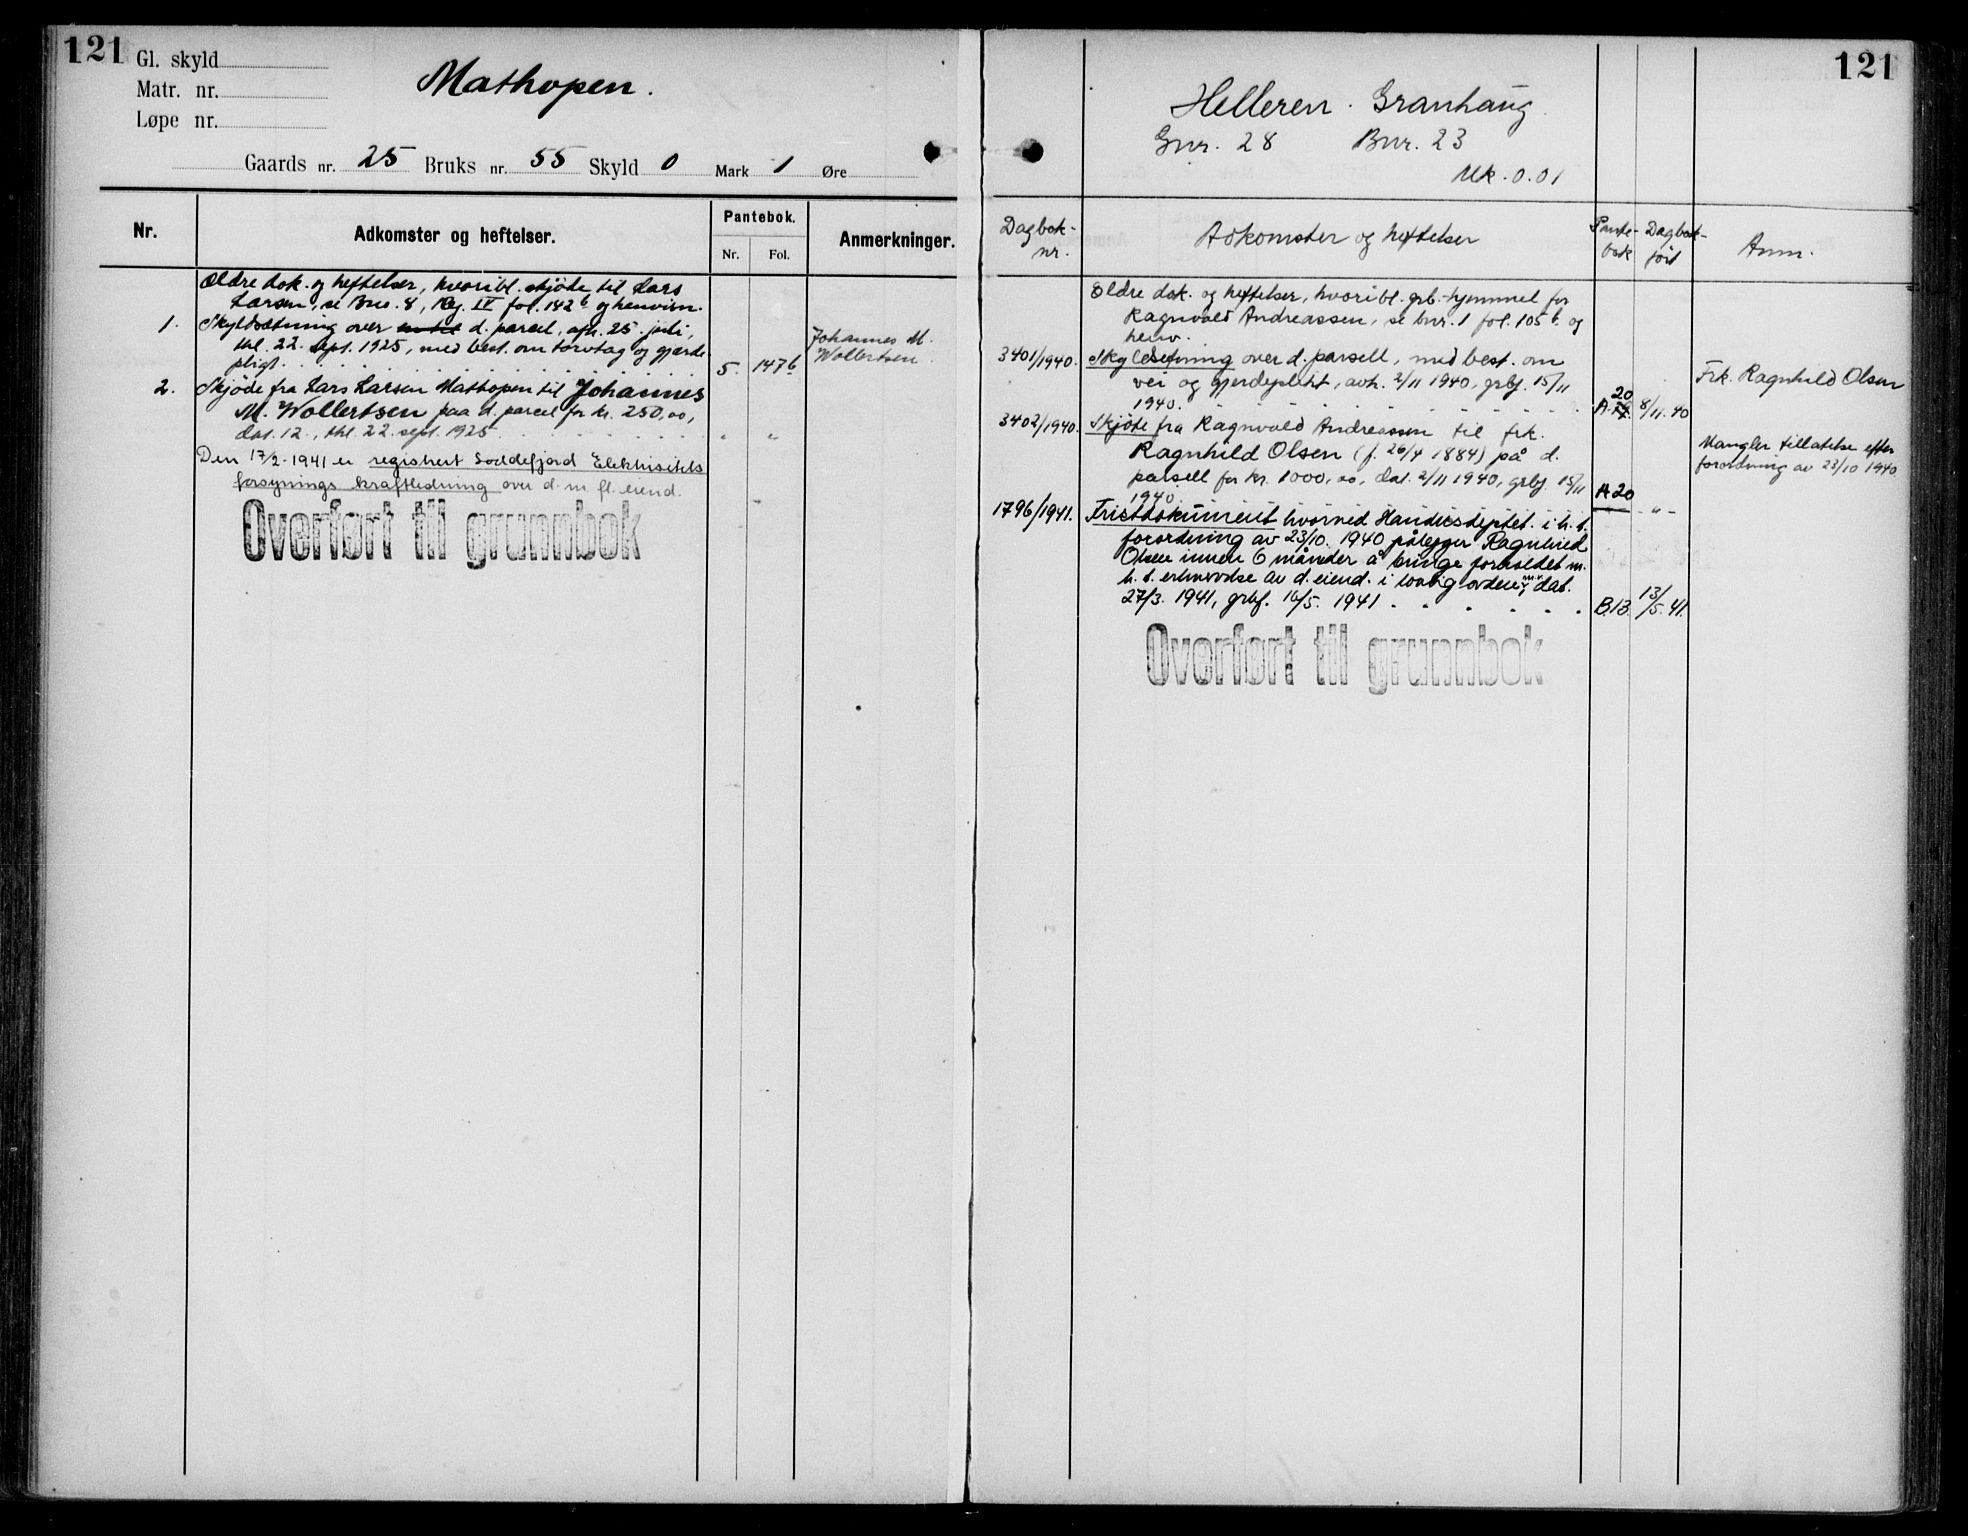 121
Gl. skyld
Matr. nr.
Løpe nr.
Mathopen.
Gaards nr. 25 Bruks nr. 55 Skyld 0 Mark 1 Øre
Nr.
Adkomster og heftelser.
Pantebok.
Nr. Fol.
Anmerkninger.
Ældre dok. og heftelser, hvoribl. skjøde til Lars
Larsen, se Bno. 8, Reg. IV fol. 142 b og henvisn.
1. Skyldsætning over d. parcel, afh. 25. juli,
thl. 22. sept. 1925, med best. om torvtag og gjærde-
pligt. 5. 147b
Johannes M.
Wollertsen
2. Skjøde fra Lars Larsen Mathopen til Johannes
M. Wollertsen paa d. parcel for kr. 250,00,
dat. 12., thl. 22. sept. 1925 " "
Den 17/2-1941 er registrert Elektrisitets
forsynings kraftledning over d. m. fl. eiend.
Overført til grunnbok
121
Helleren. Granhaug
Gnr. 28 Bnr. 23
Mk. 0.01
Dagbok-
nr.
Adkomster og heftelser
Pante-
bok
Dagbok-
ført
Anm.
Eldre dok. og heftelser, hvoribl. grb.-hjemmel for
Ragnvald Andreassen, se bnr. 1 fol. 105 b. og
henv.
3401/1940. Skyldsetning over d. parsell, med best. om
vei og gjerdeplikt, avh. 2/11 1940, grbf. 15/11
1940. A. 20 8/11. 40
Frk. Ragnhild Olsen
3402/1940. Skjøte fra Ragnvald Andreassen til frk.
Ragnhild Olsen (f. 26/4 1884) på d.
parsell for kr. 1000,00, dat. 2/11 1940, grbf. 15/11
1940 A 20 - " -
Mangler tillatelse efter
forordning av 23/10 1940
1796/1941. Fristdokument hvorved Handelsdeptet. i h. t.
forordning av 23/10. 1940 pålegger Ragnhild
Olsen innen 6 måneder å bringe forholdet m.
h. t. ervervelse av d. eiend. i lovlig orden, dat.
27/3. 1941, grbf. 16/5. 1941 B 13. 13/5. 41.
Overført til grunnbok